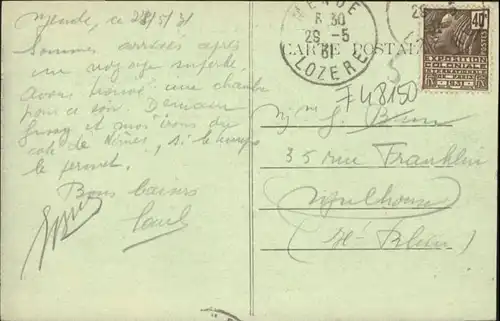 Mende, ce 28/5/31
Sommes arrivés après
un voyage superbe.
Avons trouvé une chambre
pour ce soir. Demain
et moi irons du
coté de Nîmes, si le temps
le permet.
Bons baisers
Paul
CARTE POSTALE
MENDE
29 -5
31
LOZERE
40c
EXPOSITION
COLONIALE
INTERNATIONALE
PARIS
1931
F48150
35 rue Franklin
Mulhouse
(Ht-Rhin)